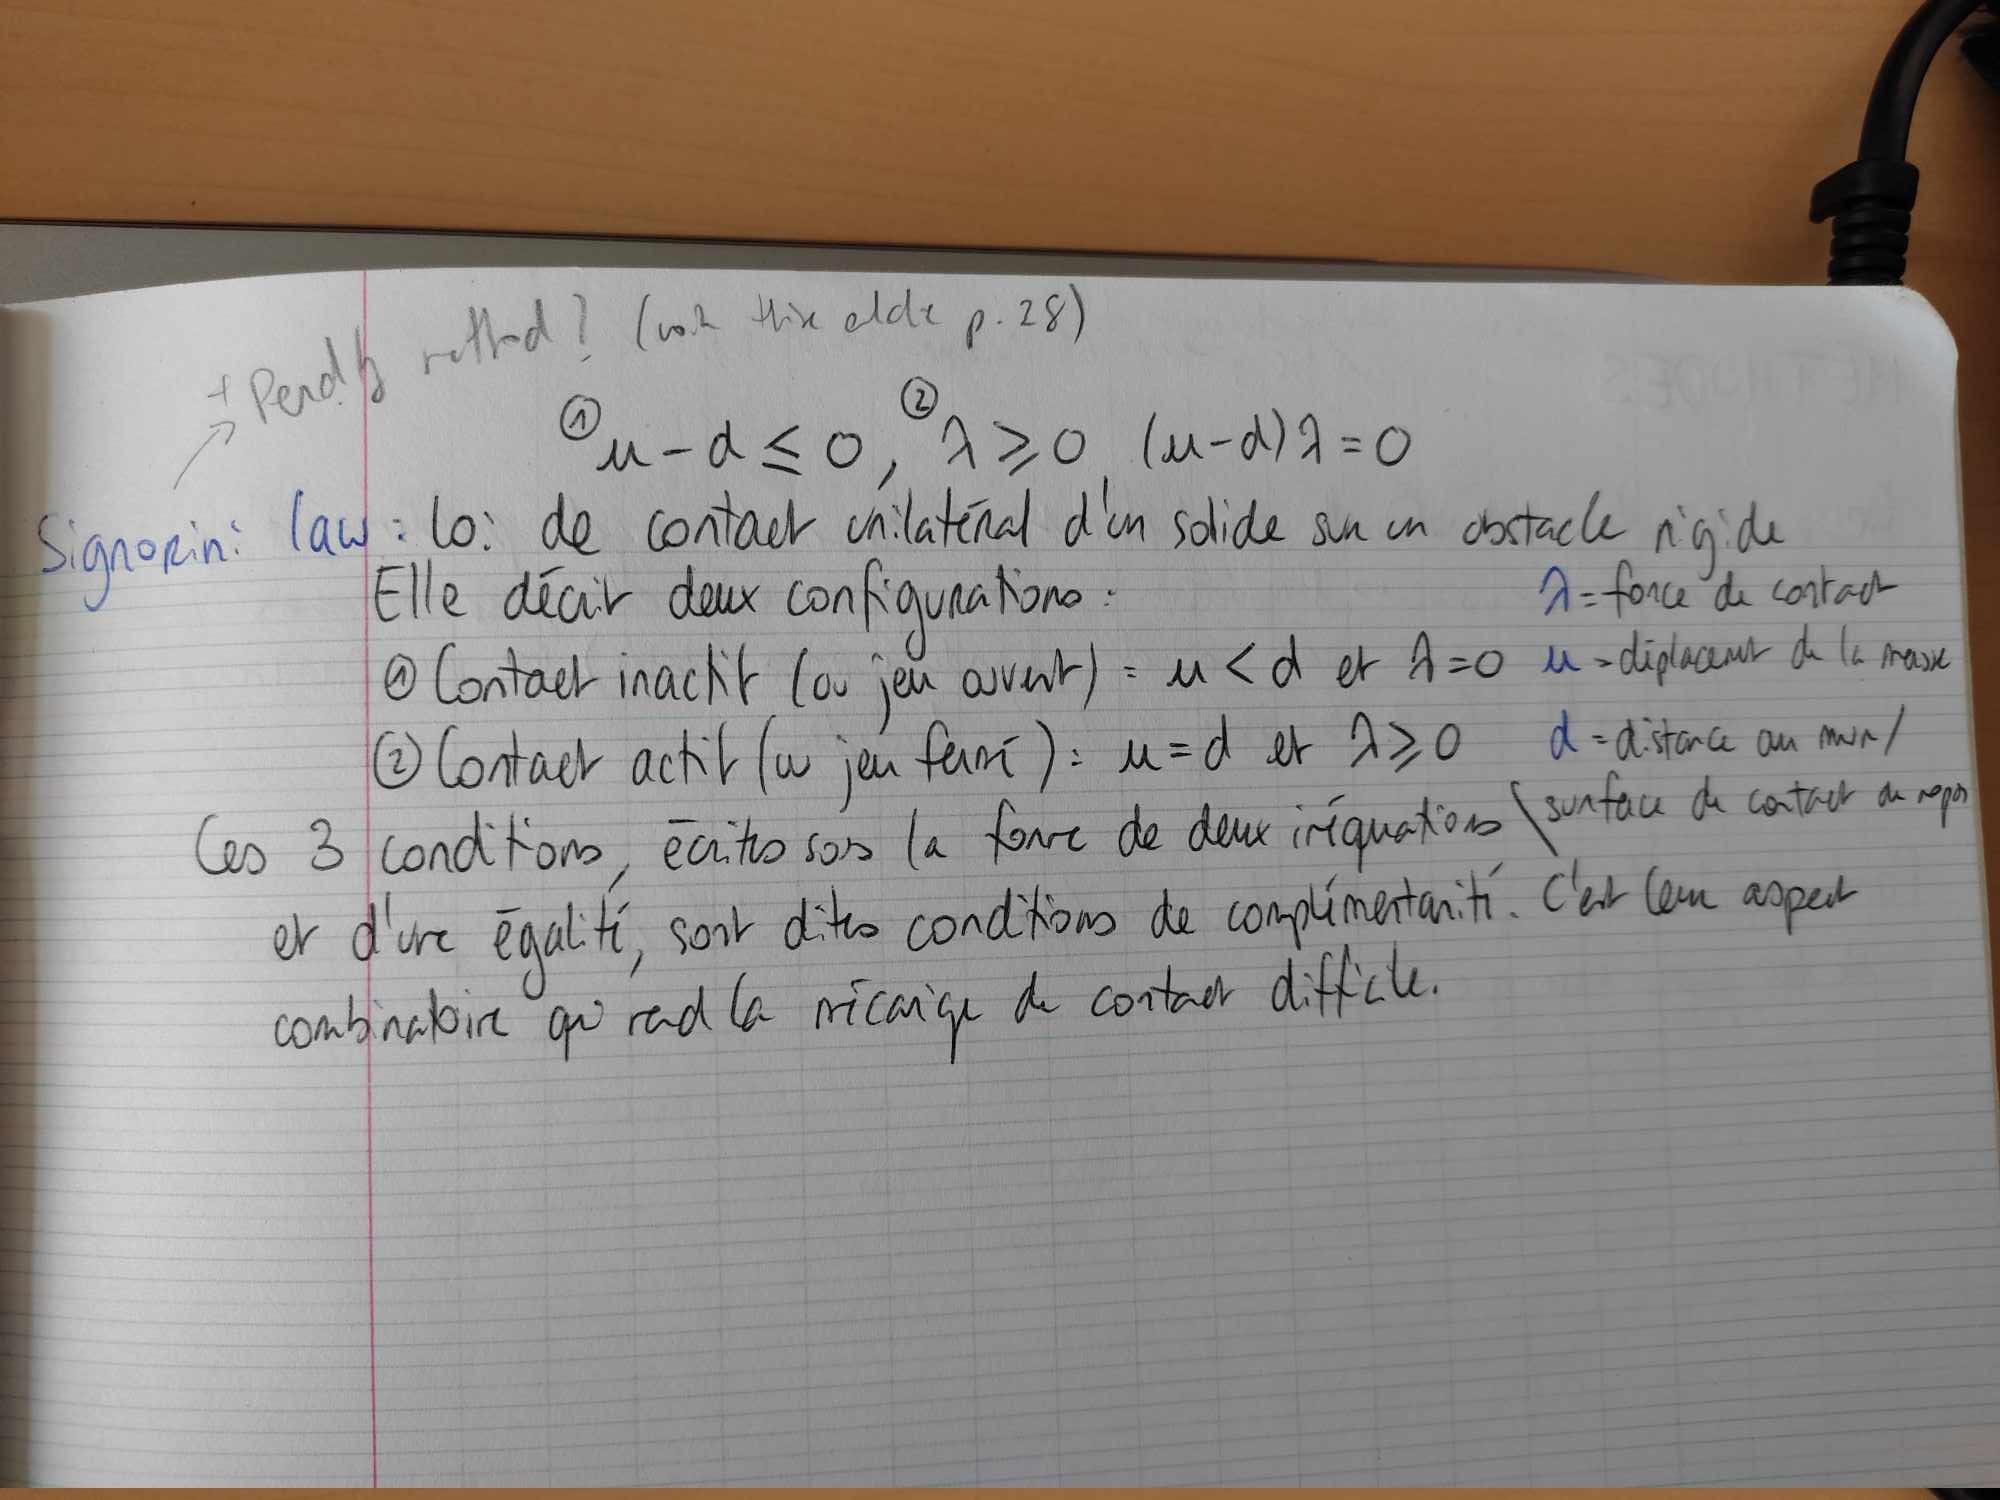 + Penalty method? (voir thèse p. 28)
① ②
u - d ≤ 0, λ ≥ 0 (u-d)λ = 0
Signorini law : loi de contact unilatéral d'un solide sur un obstacle rigide
Elle décrit deux configurations :
λ = force de contact
① Contact inactif (ou jeu ouvert) : u < d et λ = 0
u = déplacement de la masse
② Contact actif (ou jeu fermé) : u = d et λ ≥ 0
d = distance au mur /
surface de contact au repos
Ces 3 conditions, écrites sous la forme de deux inéquations
et d'une égalité, sont dites conditions de complémentarité. C'est leur aspect
combinatoire qui rend la mécanique du contact difficile.
METHODES